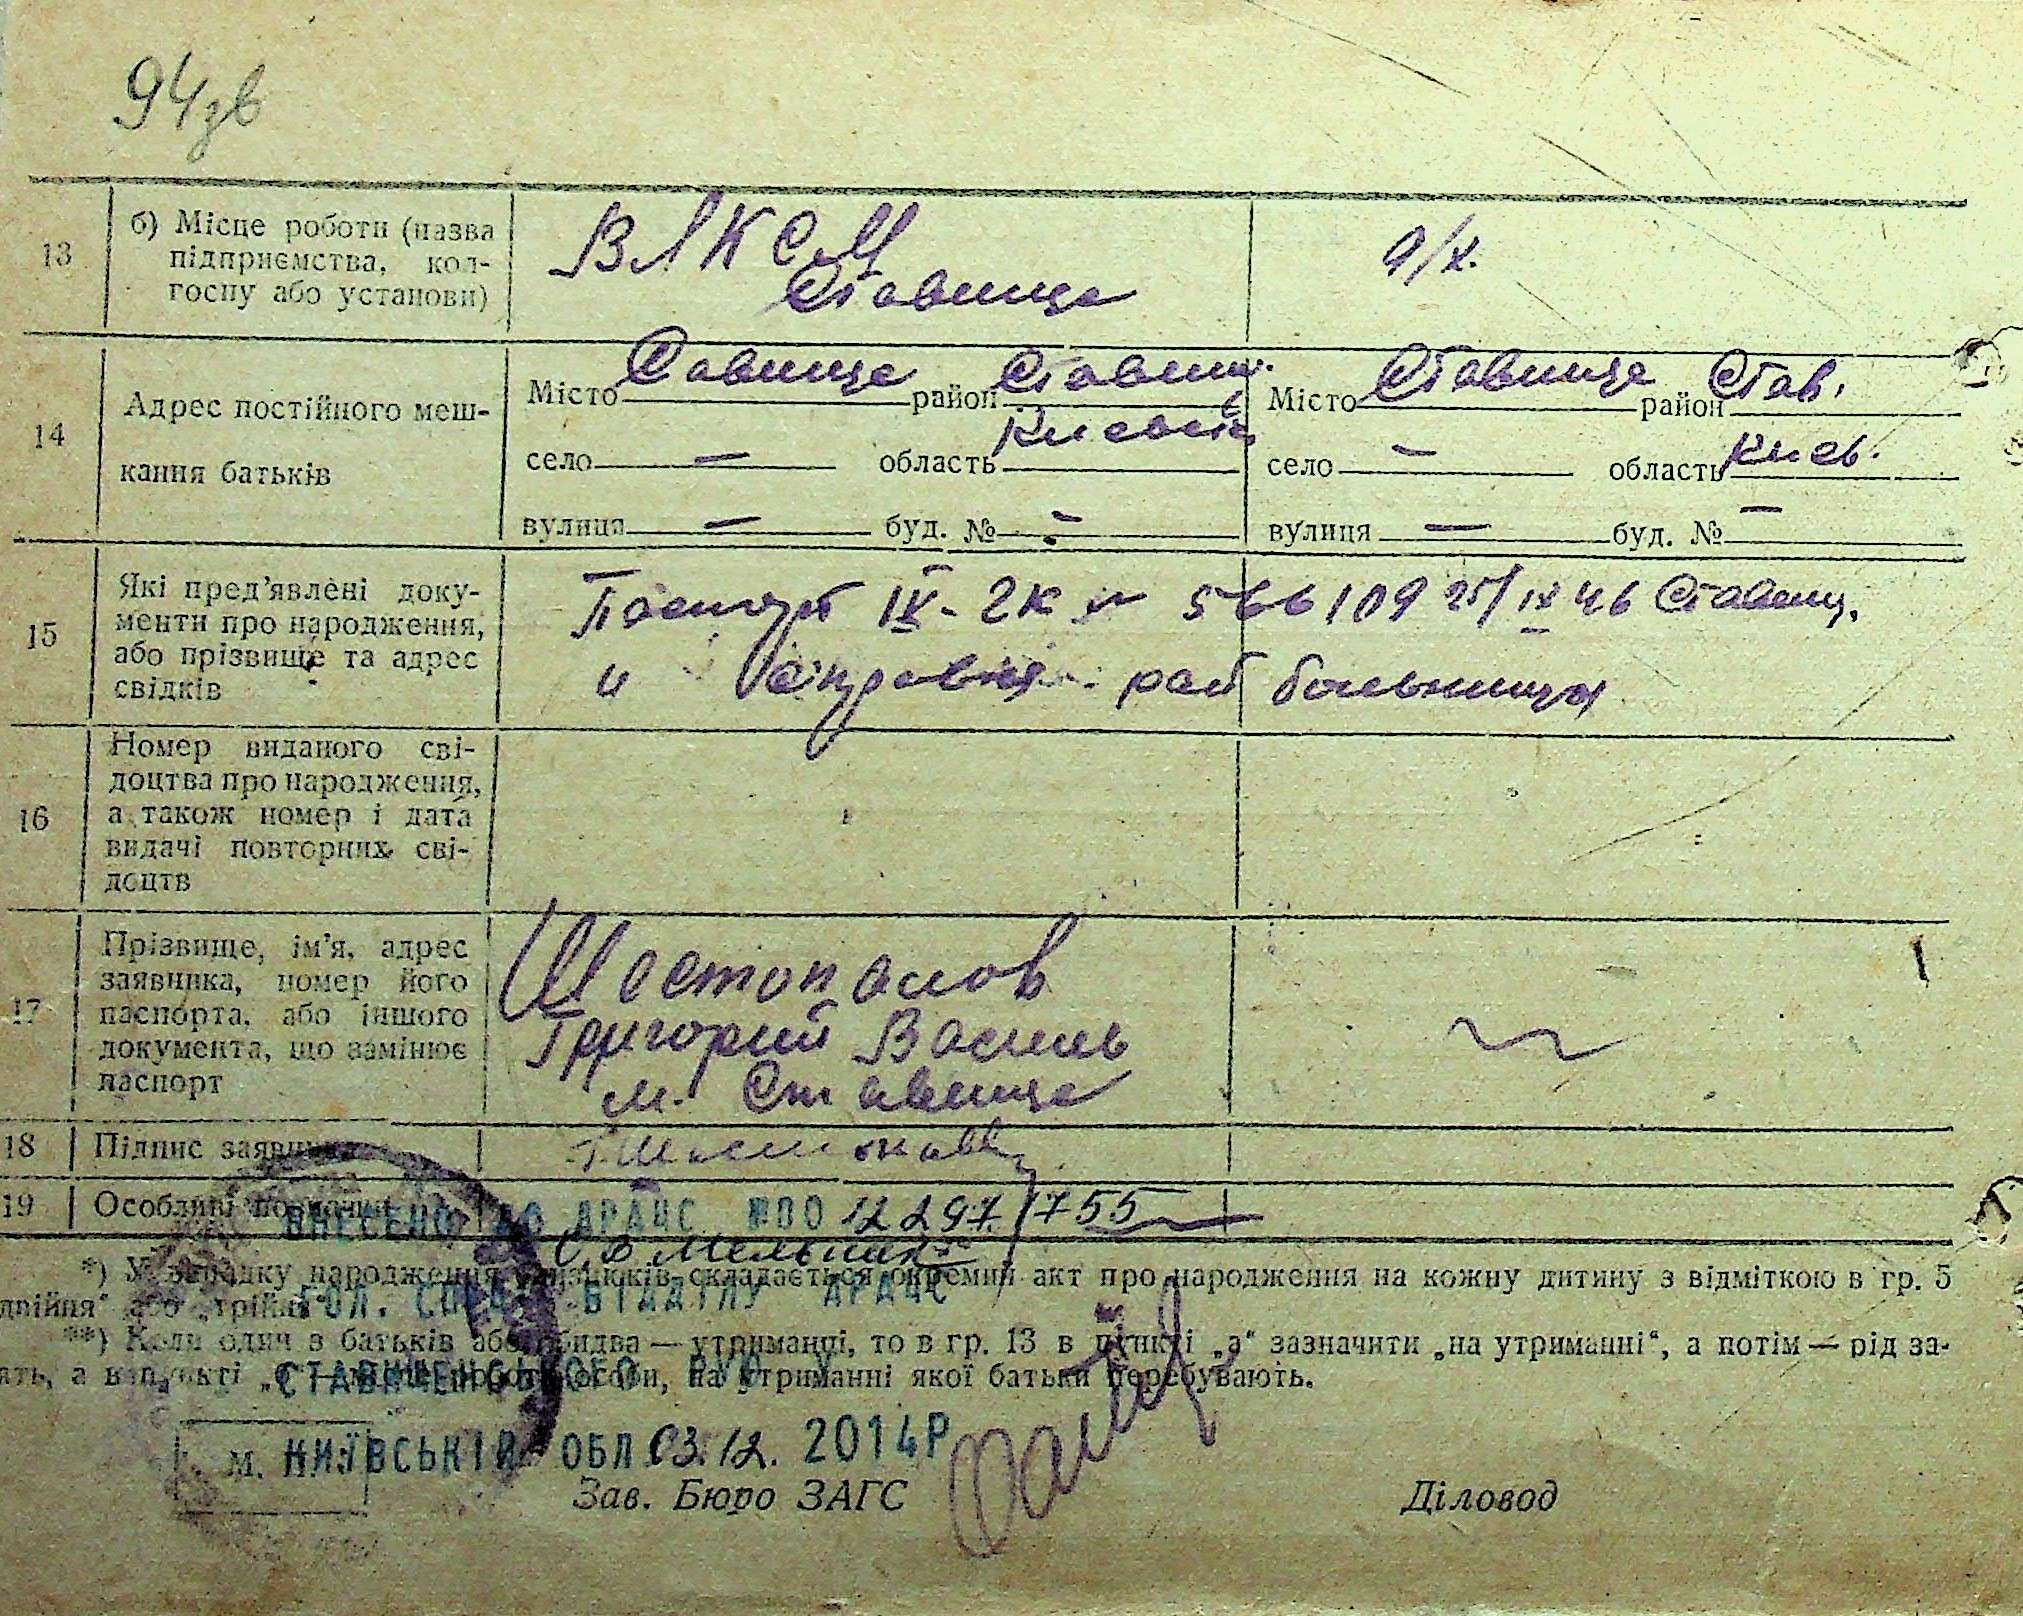 94зв
13
б) Місце роботи (назва
підприємства, кол-
госпу або установи)
ВЛКСМ
Ставище
д/х.
14
Адрес постійного меш-
кання батьків
Місто Савище район Ставищ.
село — область Киевск
вулиця — буд. № —
Місто Ставище район Став.
село — область Киев.
вулиця — буд. № —
15
Які пред'явлені доку-
менти про народження,
або прізвище та адрес
свідків
Паспорт IV-2К № 566109 25/IX 46 Ставищ.
и справка рай больницы
16
Номер виданого сві-
доцтва про народження,
а також номер і дата
видачі повторних сві-
доцтв
17
Прізвище, ім'я, адрес
заявника, номер його
паспорта, або іншого
документа, що замінює
паспорт
Шестопалов
Григорий Василь
м. Ставище
18
Підпис заявника
19
Особливі позначки
ВНЕСЕНО ДО ДРАЦС №00 12297755
С.В. Мельник
ГОЛ. СПЕЦ. ВІДДІЛУ ДРАЦС
СТАВИЩЕНСЬКОГО РУЮ У
КИЇВСЬКІЙ ОБЛ 03.12. 2014Р
*) У випадку народження близнюків складається окремий акт про народження на кожну дитину з відміткою в гр. 5
двійня" або „трійня"
**) Коли один з батьків або обидва — утриманці, то в гр. 13 в пункті „а" зазначити „на утриманні", а потім — рід за-
ять, а в пункті „б" — місце роботи особи, на утриманні якої батьки перебувають.
М. П.
Зав. Бюро ЗАГС
Діловод